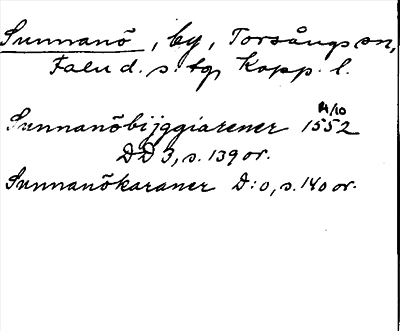 Sunnanö, by, Torsångs sn,
Falu d. s. tg Kopp. l.
Sunnanöbijggiarener 1552 14/10
DD 3, s. 139 or.
Sunnanökaraner D:o, s. 140 or.